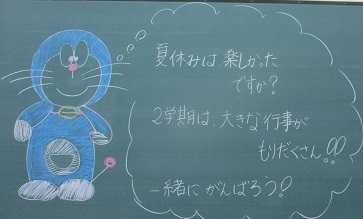 夏休みは、楽しかった
ですか?
2学期は、大きな行事が
もりだくさん!!
一緒にがんばろう!